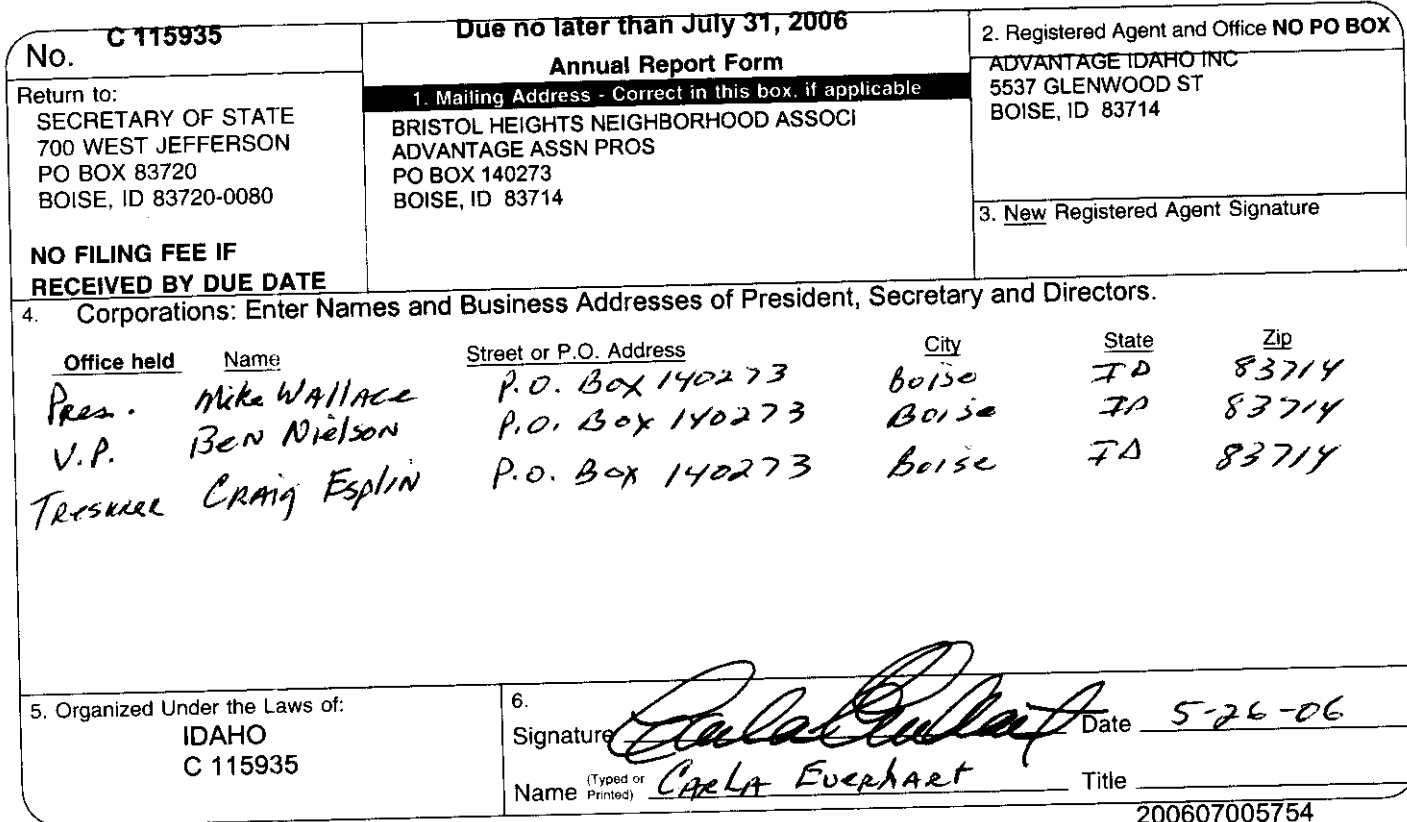 No. C 115935
Return to:
SECRETARY OF STATE
700 WEST JEFFERSON
PO BOX 83720
BOISE, ID 83720-0080
NO FILING FEE IF
RECEIVED BY DUE DATE
Due no later than July 31, 2006
Annual Report Form
1. Mailing Address - Correct in this box, if applicable
BRISTOL HEIGHTS NEIGHBORHOOD ASSOCI
ADVANTAGE ASSN PROS
PO BOX 140273
BOISE, ID 83714
2. Registered Agent and Office NO PO BOX
ADVANTAGE IDAHO INC
5537 GLENWOOD ST
BOISE, ID 83714
3. New Registered Agent Signature
4. Corporations: Enter Names and Business Addresses of President, Secretary and Directors.
Office held Name Street or P.O. Address City State Zip
Pres. Mike Wallace P.O. Box 140273 Boise ID 83714
V.P. Ben Nielson P.O. Box 140273 Boise ID 83714
Tresurer Craig Esplin P.O. Box 140273 Boise ID 83714
5. Organized Under the Laws of:
IDAHO
C 115935
6.
Signature Carla Everhart Date 5-26-06
Name (Typed or Printed) Carla Everhart Title
200607005754